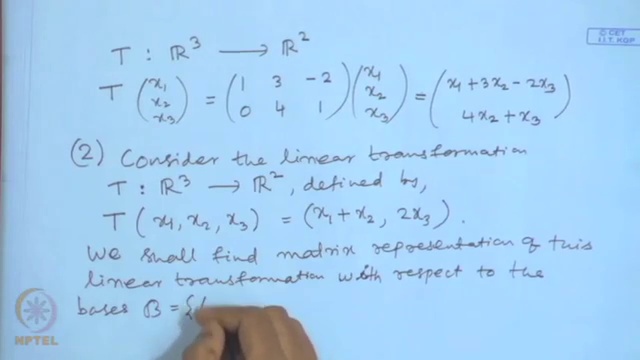 © CET
I.I.T. KGP
T : ℝ³ ⟶ ℝ²
T (x₁ x₂ x₃) = (1 3 -2 0 4 1) (x₁ x₂ x₃) = (x₁ + 3x₂ - 2x₃ 4x₂ + x₃)
(2) Consider the linear transformation
T : ℝ³ → ℝ², defined by,
T (x₁, x₂, x₃) = (x₁ + x₂, 2x₃).
We shall find matrix representation of this
linear transformation with respect to the
bases B = {(
NPTEL